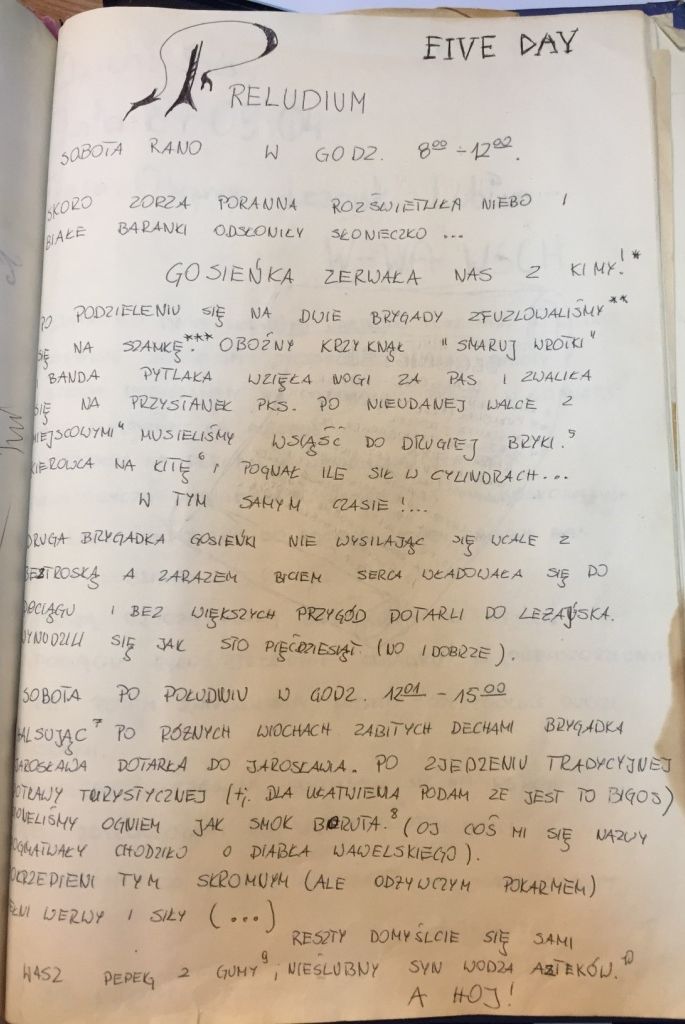 FIVE DAY
PRELUDIUM
SOBOTA RANO W GODZ. 8⁰⁰ - 12⁰⁰.
SKORO ZORZA PORANNA ROZŚWIETLIŁA NIEBO I
BIAŁE BARANKI ODSŁONIŁY SŁONECZKO ...
GOSIEŃKA ZERWAŁA NAS Z KIMY!*
PO PODZIELENIU SIĘ NA DWIE BRYGADY ZFUZLOWALIŚMY**
SIĘ NA SZAMKĘ.*** OBOŹNY KRZYKNĄŁ "SMARUJ WROTKI"
I BANDA PYTLAKA WZIĘŁA NOGI ZA PAS I ZWALIŁA
SIĘ NA PRZYSTANEK PKS. PO NIEUDANEJ WALCE Z
MIEJSCOWYMI⁴ MUSIELIŚMY WSIĄŚĆ DO DRUGIEJ BRYKI.⁵
KIEROWCA NA KITĘ⁶ I POGNAŁ ILE SIŁ W CYLINDRACH...
W TYM SAMYM CZASIE!...
DRUGA BRYGADKA GOSIEŃKI NIE WYSILAJĄC SIĘ WCALE Z
BEZTROSKĄ A ZARAZEM BICIEM SERCA WŁADOWAŁA SIĘ DO
POCIĄGU I BEZ WIĘKSZYCH PRZYGÓD DOTARLI DO LEŻAJSKA.
WYNUDZILI SIĘ JAK STO PIĘĆDZIESIĄT. (NO I DOBRZE).
SOBOTA PO POŁUDNIU W GODZ. 12⁰¹ - 15⁰⁰
WALSUJĄC⁷ PO RÓŻNYCH WIOCHACH ZABITYCH DECHAMI BRYGADKA
JAROSŁAWA DOTARŁA DO JAROSŁAWIA. PO ZJEDZENIU TRADYCYJNEJ
POTRAWY TURYSTYCZNEJ (tj. DLA UŁATWIENIA PODAM ŻE JEST TO BIGOS)
ZIONELIŚMY OGNIEM JAK SMOK BORUTA.⁸ (OJ COŚ MI SIĘ NAZWY
POGMATWAŁY CHODZIŁO O DIABŁA WAWELSKIEGO).
POKRZEPIENI TYM SKROMNYM (ALE ODŻYWCZYM POKARMEM)
PEŁNI WERWY I SIŁY (...)
RESZTY DOMYŚLCIE SIĘ SAMI
WASZ PEPEG Z GUMY⁹, NIEŚLUBNY SYN WODZA AZTEKÓW.¹⁰
A HOJ!